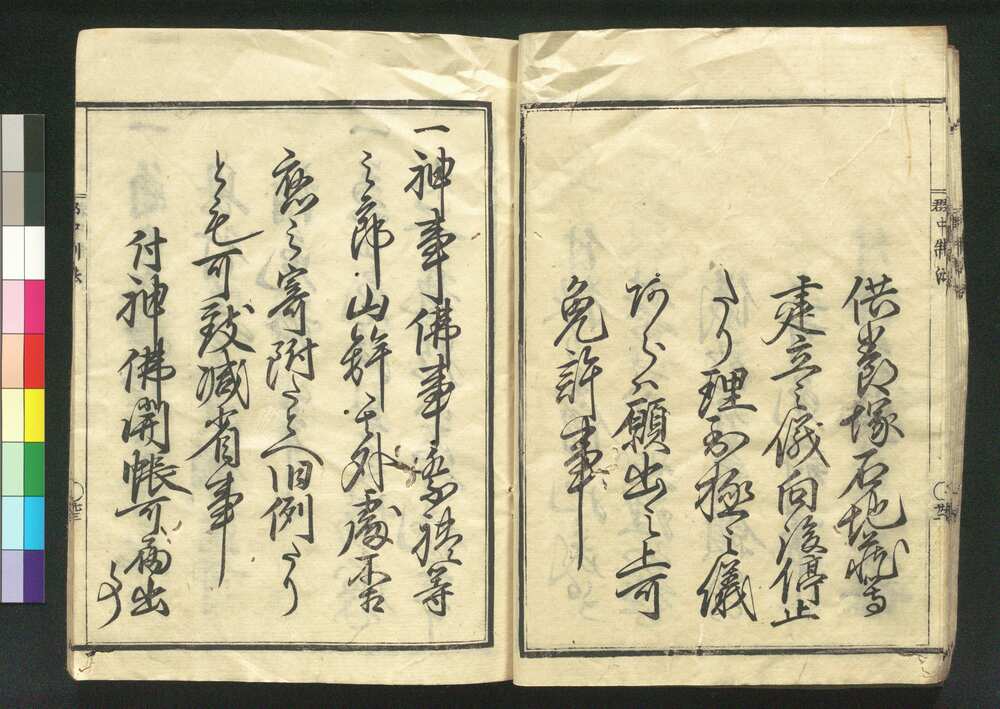 郡中制法
供養塚石地蔵等
建立之儀向後停止
たり理至極之儀
あらハ願出之上可
免許事
一神事佛事祭礼等
之節山鉾其外處不相
應之寄附たとへ旧例たり
とも可致減省事
付神佛開帳可出事